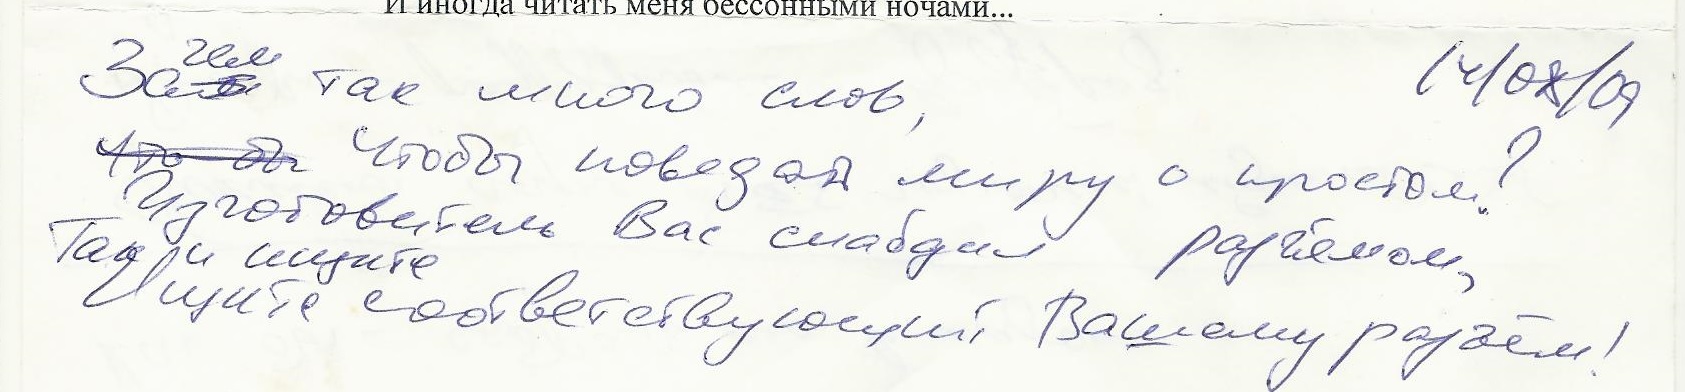 И иногда читать меня бессонными ночами...
Зачем так много слов,
14/08/09
Что бы Чтобы поведать миру о простом?
Изготовитель Вас снабдил разъёмом,
Так и ищите
Ищите соответствующий Вашему разъём!